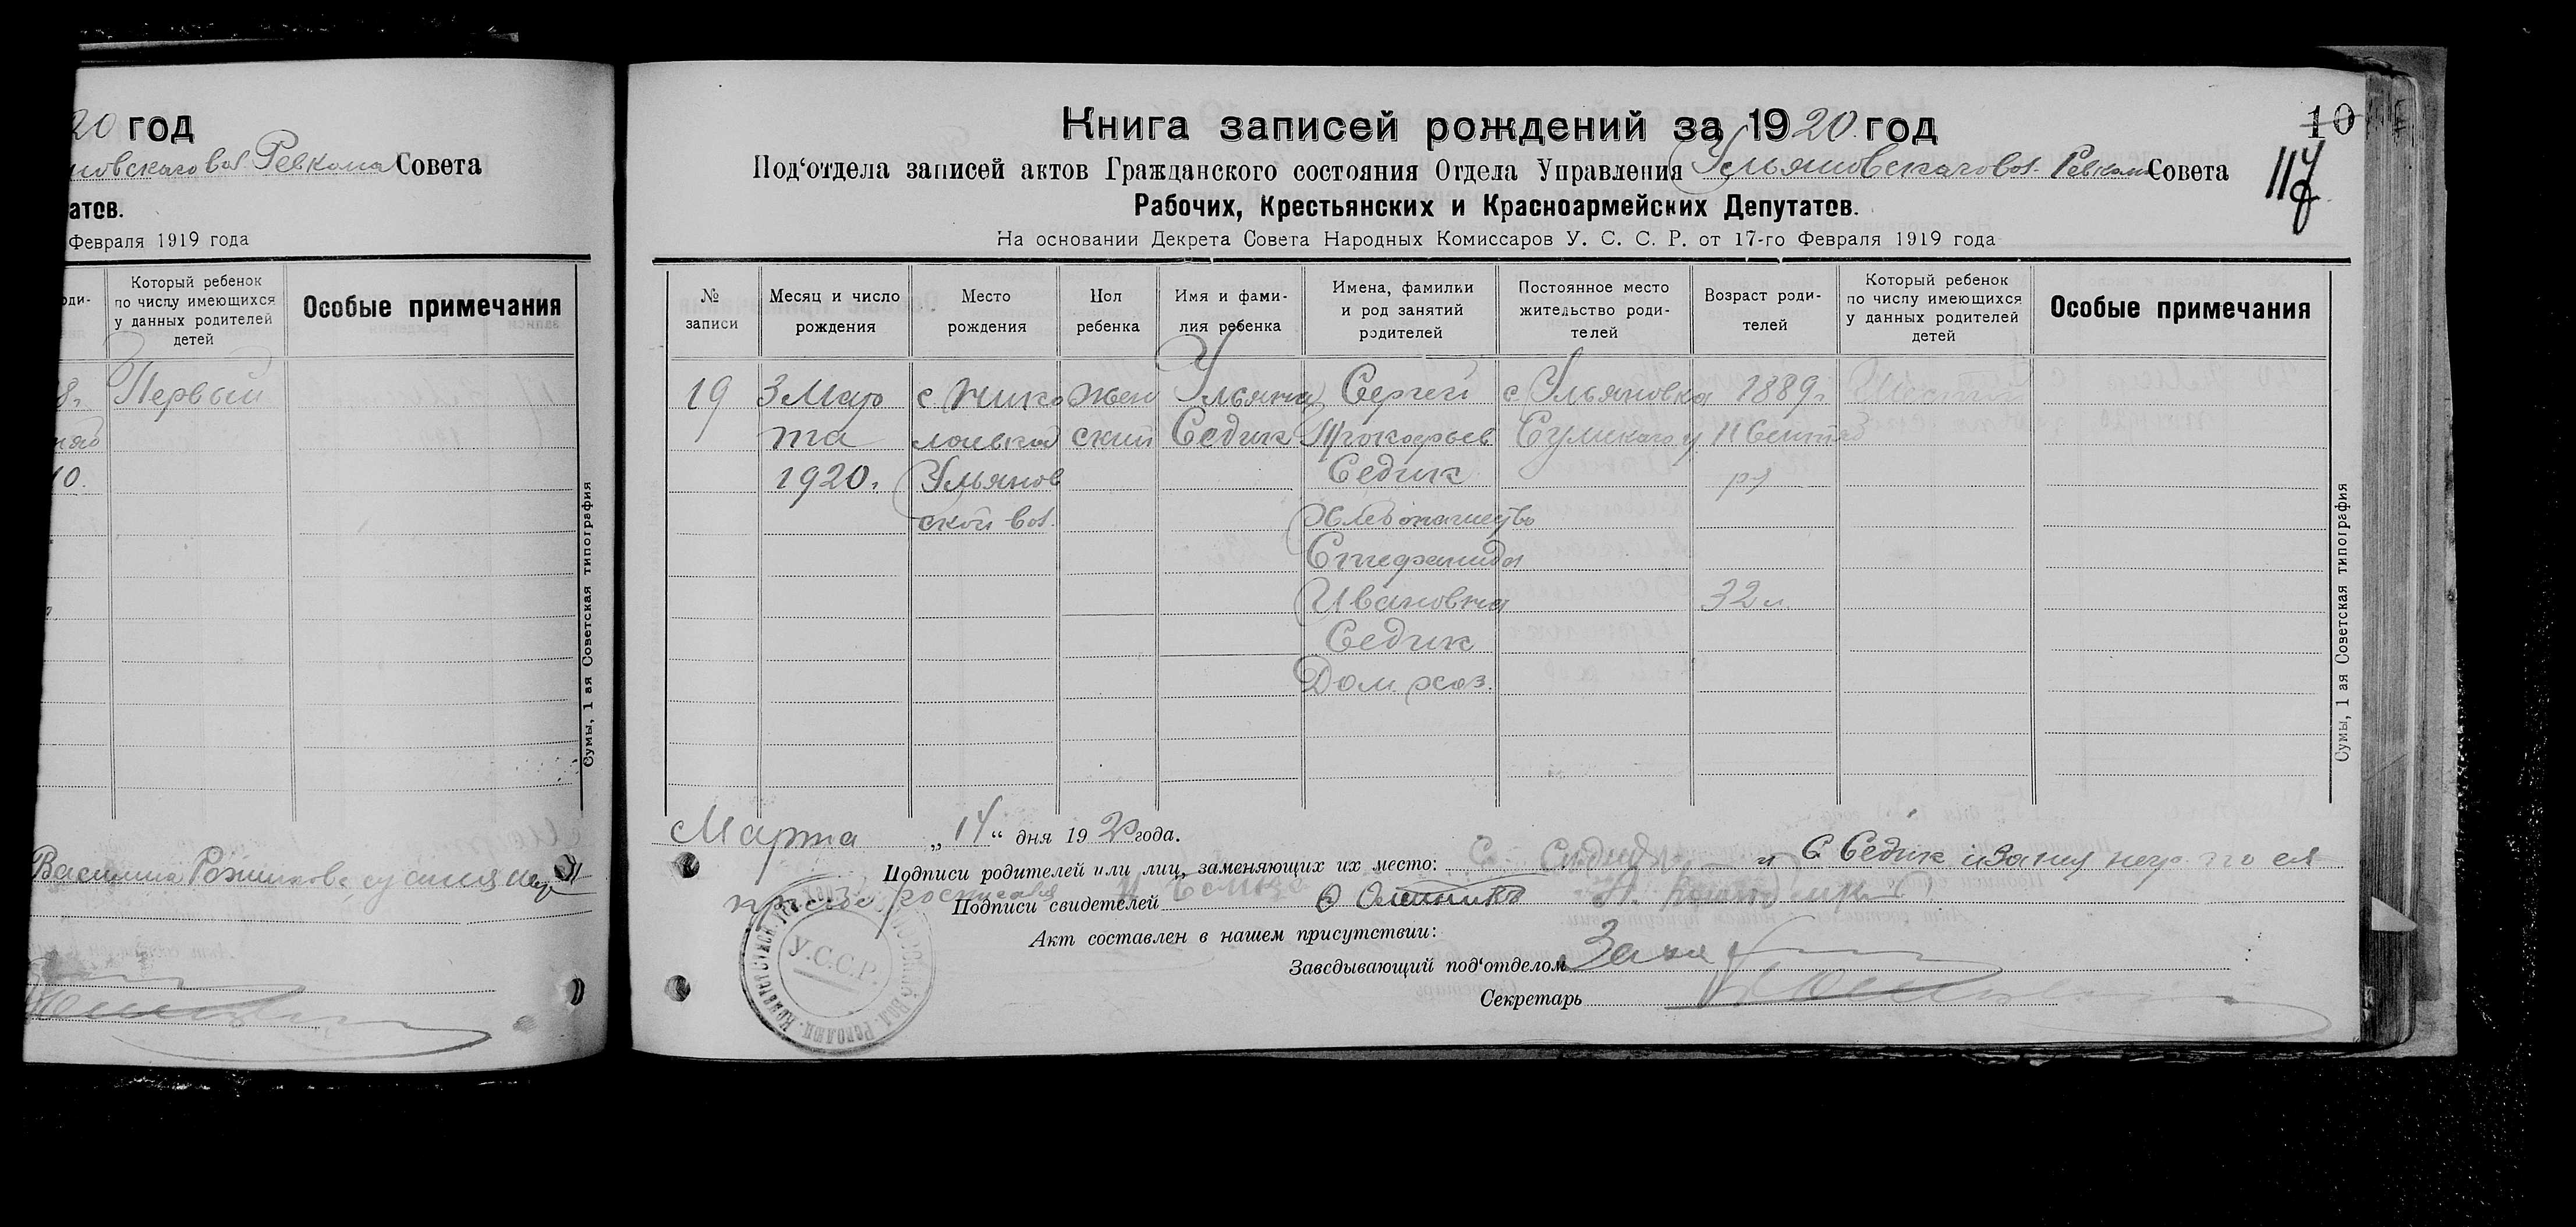 20 год
новскаго вол. Ревкома Совета
атов.
Февраля 1919 года
Который ребенок по числу имеющихся у данных родителей детей
Особые примечания
Первый
Сумы, 1 ая Советская типография
Книга записей рождений за 1920 год
10
117
Под‘отдела записей актов Гражданского состояния Отдела Управления Ульяновскаго вол. Ревкома Совета
Рабочих, Крестьянских и Красноармейских Депутатов.
На основании Декрета Совета Народных Комиссаров У. С. С. Р. от 17-го Февраля 1919 года
№ записи
Месяц и число рождения
Место рождения
Пол ребенка
Имя и фами-
лия ребенка
Имена, фамилии
и род занятий
родителей
Постоянное место
жительство роди-
телей
Возраст роди-
телей
Который ребенок
по числу имеющихся
у данных родителей
детей
Особые примечания
19
3 Мар
та
1920 г.
с Нико
лаевка
Ульянов
ской вол.
жен
ский
Ульяна
Седик
Сергей
Прокофьев
Седик
Хлебопашество
Степанида
Ивановна
Седик
Дом. хоз.
с Ульяновка
Сумскаго у
1889 г.
32 л.
Сумы, 1 ая Советская типография
Марта „14“ дня 1920 года.
Подписи родителей или лиц, заменяющих их место: С. и С Седик за нея
Подписи свидетелей
Акт составлен в нашем присутствии:
Заведывающий под‘отделом
Секретарь
У.С.С.Р.